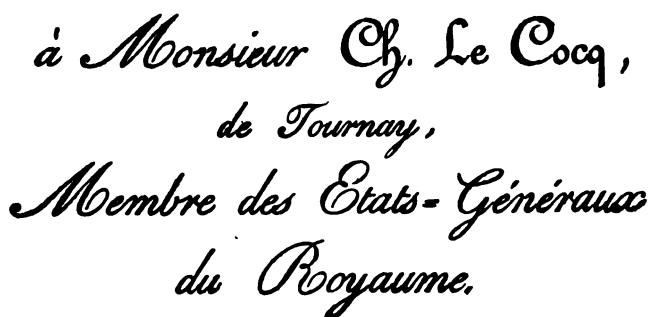 à Monsieur Ch. Le Cocq,
de Tournay,
Membre des États-Généraux
du Royaume.